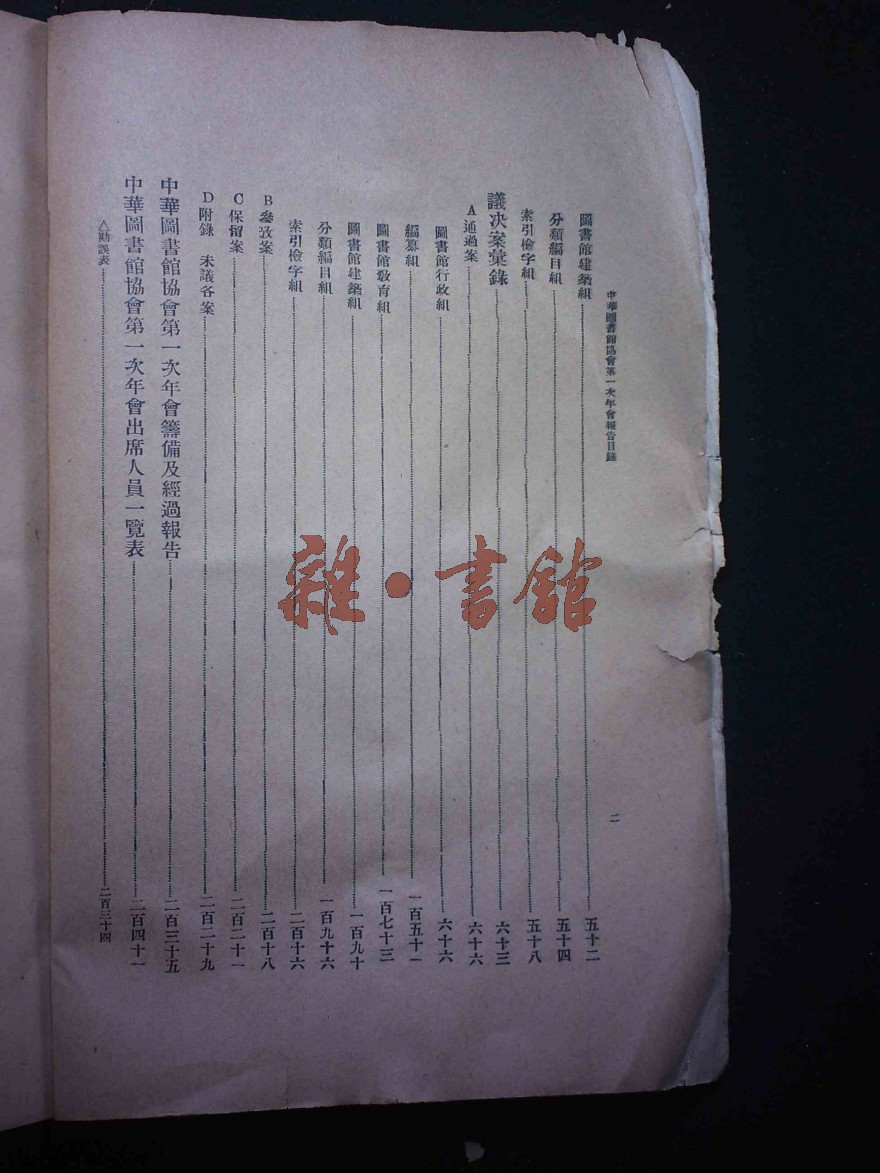 中華圖書館協會第一次年會報告目錄
二
圖書館建築組 五十二
分類編目組 五十四
索引檢字組 五十八
議决案彙錄 六十三
A 通過案 六十六
圖書館行政組 六十六
編纂組 一百五十一
圖書館敎育組 一百七十三
圖書館建築組 一百九十
分類編目組 一百九十六
索引檢字組 二百十六
B 參攷案 二百十八
C 保留案 二百二十一
D 附錄 未議各案 二百二十九
中華圖書館協會第一次年會籌備及經過報告 二百三十五
中華圖書館協會第一次年會出席人員一覽表 二百四十一
△勘誤表 二百三十四
雜·書館